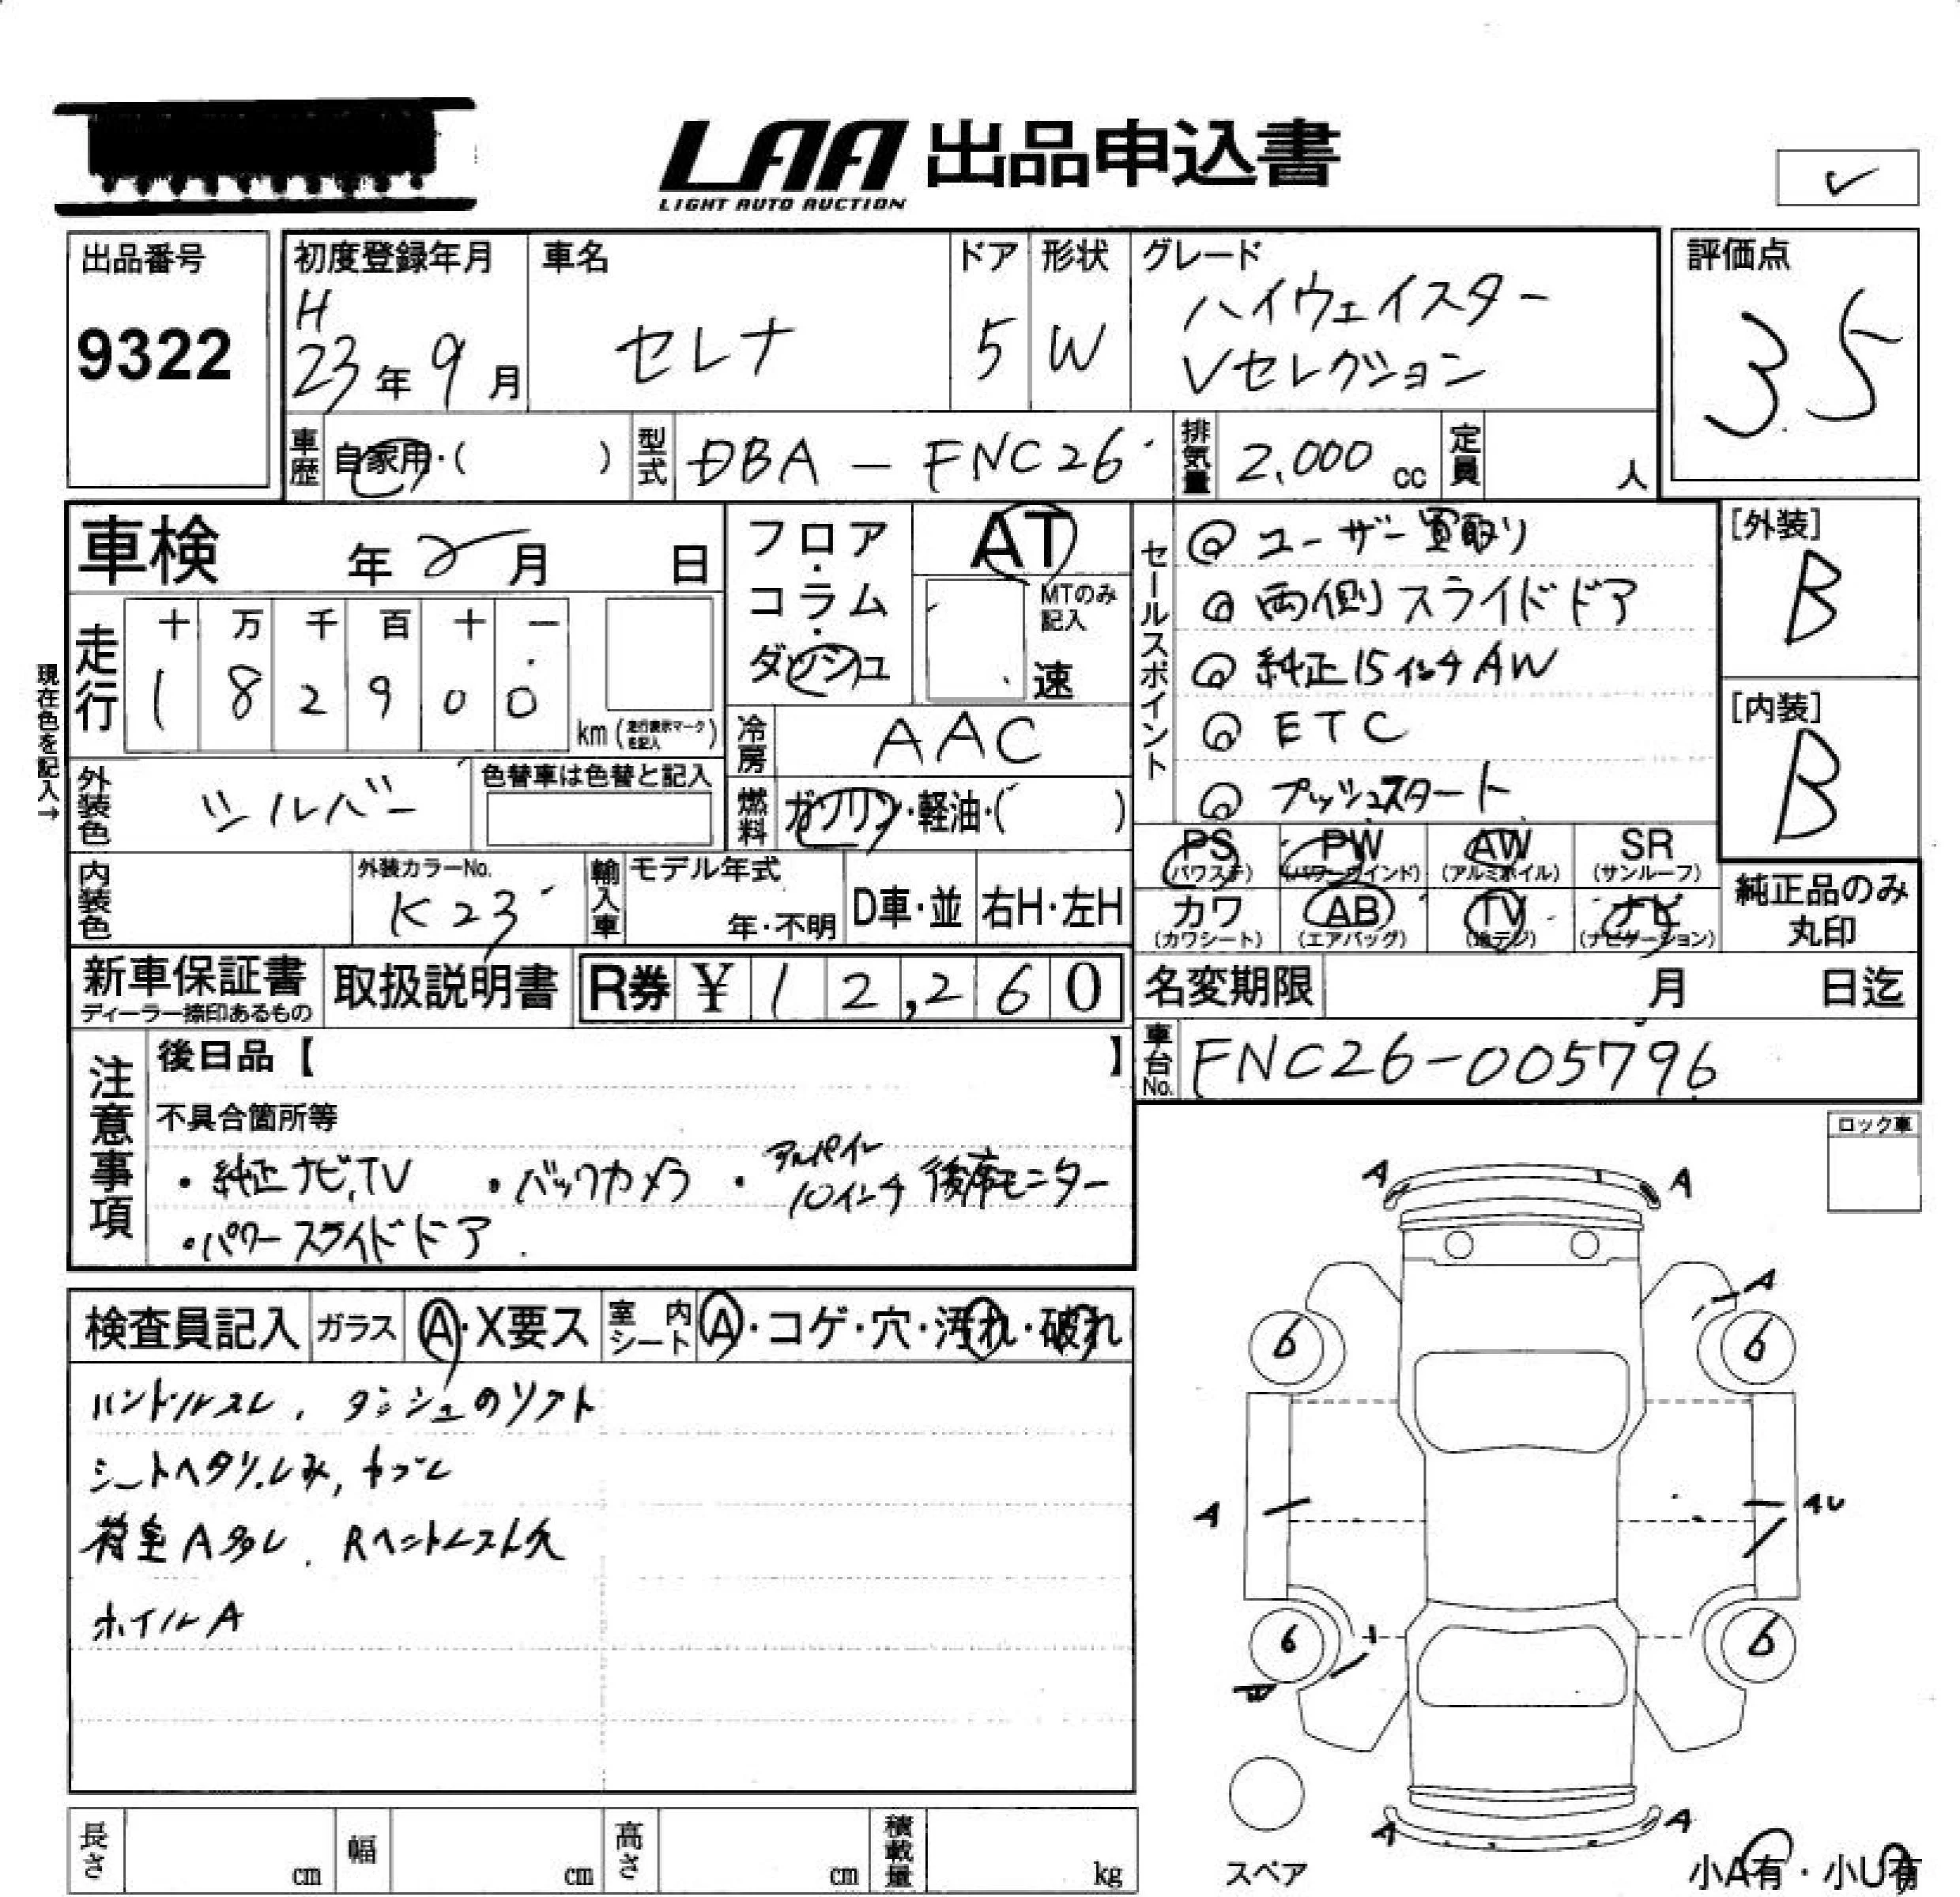 LAA 出品申込書
LIGHT AUTO AUCTION
出品番号
9322
初度登録年月
H
23年9月
車名
セレナ
ドア
5
形状
W
グレード
ハイウェイスター
Vセレクション
評価点
3.5
車歴 自家用・( )
型式 DBA-FNC26
排気量 2,000cc
定員 人
車検 年 月 日
走行
十 万 千 百 十 一
1 8 2 9 0 0
km(走行表示マークを記入)
現在色を記入→
外装色 シルバー
色替車は色替と記入
内装色
外装カラーNo.
K23
輸入車
モデル年式
年・不明
D車・並
右H・左H
フロア・コラム・ダッシュ
AT
MTのみ記入
速
冷房 AAC
燃料 ガソリン・軽油・( )
セールスポイント
ユーザー買取り
両側スライドドア
純正15インチAW
ETC
プッシュスタート
[外装]
B
[内装]
B
PS (パワステ)
PW (パワーウインド)
AW (アルミホイル)
SR (サンルーフ)
カワ (カワシート)
AB (エアバッグ)
TV (地デジ)
ナビ (ナビゲーション)
純正品のみ丸印
新車保証書
ディーラー捺印あるもの
取扱説明書
R券 ¥12,260
名変期限 月 日迄
車台No. FNC26-005796
注意事項
後日品【 】
不具合箇所等
・純正ナビ,TV ・バックカメラ ・アルパイン10インチ後席モニター
・パワースライドドア
ロック車
検査員記入
ガラス A・X要ス
室内シート A・コゲ・穴・汚れ・破れ
ハンドルスレ、ダッシュのソフト
シートヘタリ.しみ,
荷室A多し、Rヘッドレスト欠
ホイルA
A
A
A
6
6
A
AU
6
6
A
A
スペア
小A有・小U有
長さ cm
幅 cm
高さ cm
積載量 kg